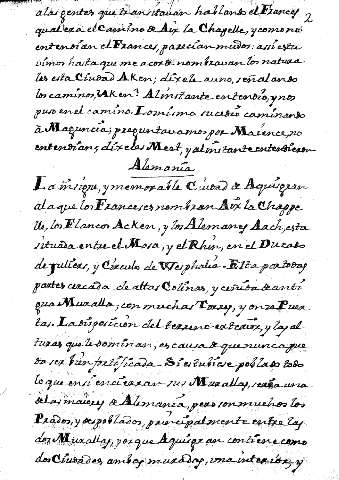 2
a las gentes que transitavan hablando el Frances
qual era el Camino de Aix la Chapelle, y como no
entendian el Frances, parecian mudos: assi estu
vimos hasta que me acorde nombravan los natura
les esta Ciudad Aken; dixele a uno, señalando
los caminos, Aken? Al instante entendio, y nos
puso en el camino. Lo mismo sucedio caminando
à Maguncia; preguntavamos por Maience, no
entendian; dixelos Ment, y al instante entendieron
Alemania
La insigne, y memorable Ciudad de Aquisgran
a la que los Franceses nombran Aix la Chappe
lle, los Flancos Acken, y los Alemanes Aach, esta
situada entre el Mosa, y el Rhin, en el Ducado
de Juliers, y Circulo de Wesphalia. Esta por todas
partes cercada de altas Colinas, y ceñida de anti
gua Muralla, con muchas Torres, y onze Puer
tas. La disposicion del terreno exterior, y las al
turas que le dominan, es causa de que nunca pue
da ser bien fortificada. Si estubiese poblado todo
lo que en si encierran sus Murallas, seria una
de las maiores de Alemania, pero son muchos los
Prados, y despoblados, principalmente entre las
dos Murallas, porque Aquisgran contiene como
dos Ciudades, ambas muradas, una interior, y